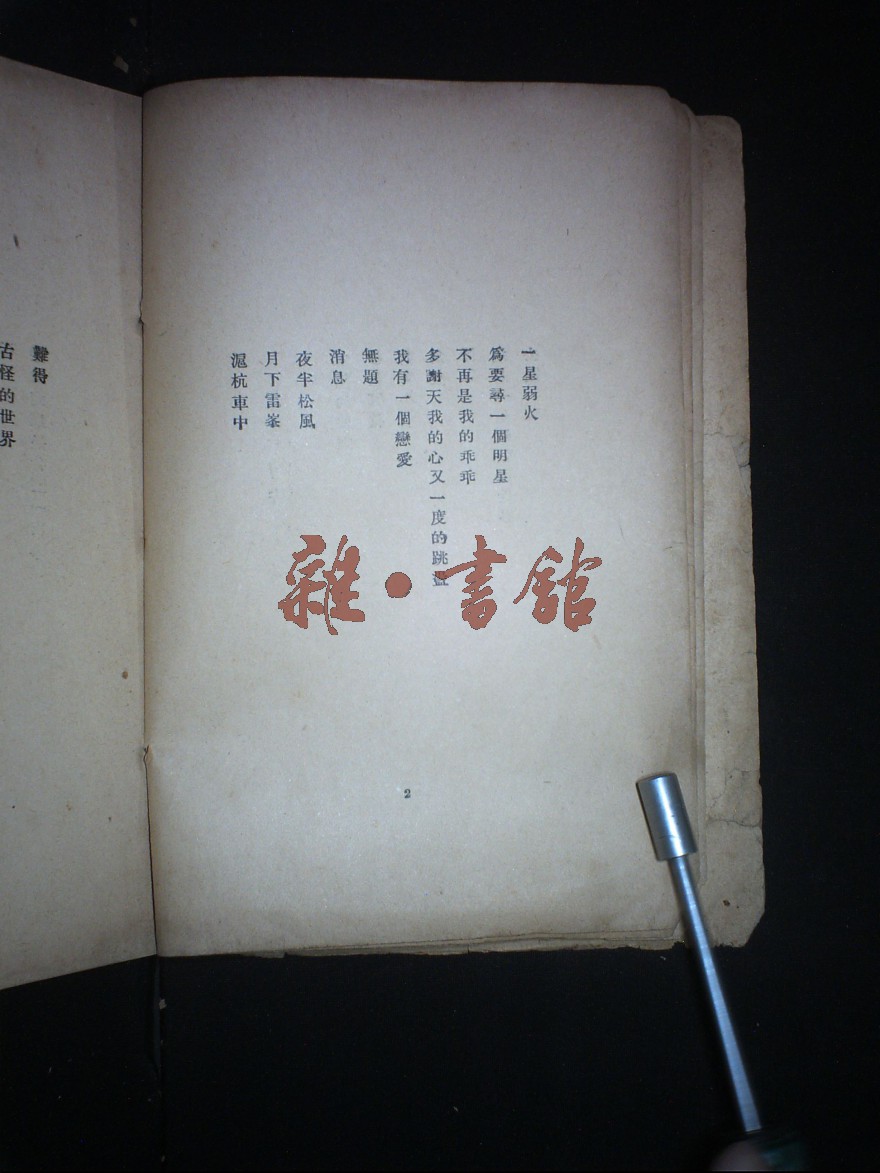 一星弱火
爲要尋一個明星
不再是我的乖乖
多謝天我的心又一度的跳盪
我有一個戀愛
無題
消息
夜半松風
月下雷峯
滬杭車中
2
難得
古怪的世界
雜・書館